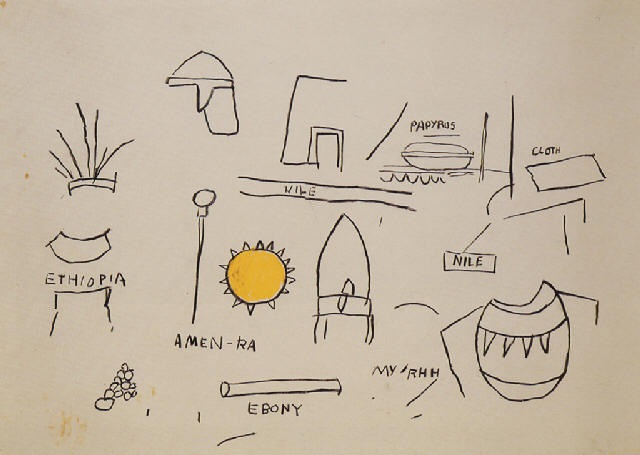 PAPYRUS
CLOTH
NILE
NILE
ETHIOPIA
AMEN-RA
MYRRHH
EBONY